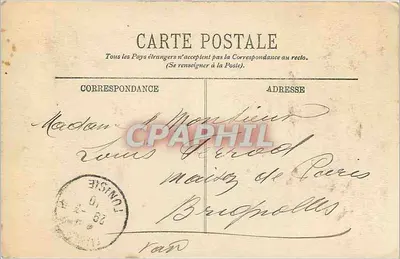 CARTE POSTALE
Tous les Pays étrangers n'acceptent pas la Correspondance au recto.
(Se renseigner à la Poste).
CORRESPONDANCE ADRESSE
Madame & Monsieur
CPAPHIL
Louis
Maison de Paris
Brignolles
Var
TUNISIE